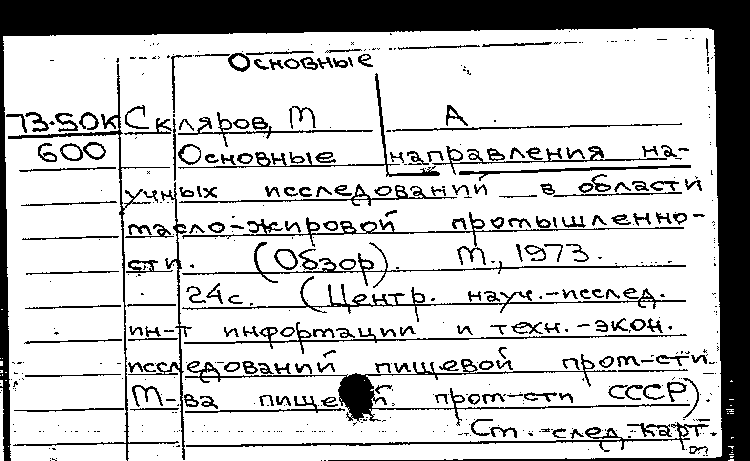 Основные
73-50К Скляров, М А.
600 Основные направления на-
учных исследований в области
масло-жировой промышленно-
сти. (Обзор). М., 1973.
24с. (Центр. науч.-исслед.
ин-т информации и техн.-экон.
исследований пищевой пром-сти
М-ва пищевой пром-сти СССР).
См.-след, карт.